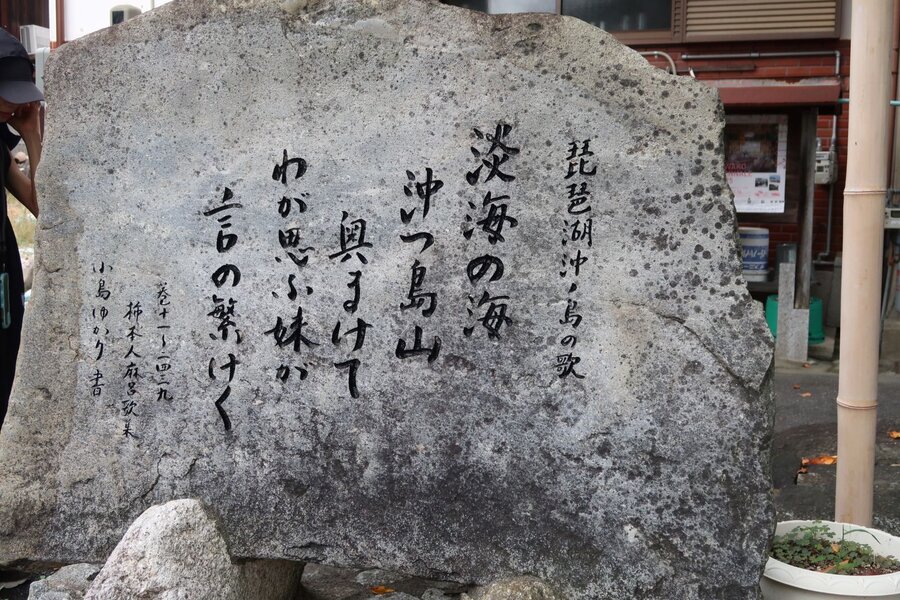 琵琶湖沖ノ島の歌
淡海の海
沖つ島山
奥まけて
わが思ふ妹が
言の繁けく
巻十一〜二四三九
柿本人麻呂歌集
小島ゆかり 書